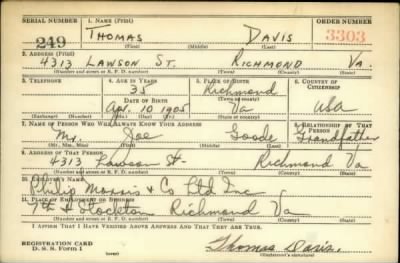 SERIAL NUMBER 1. NAME (Print) ORDER NUMBER
249 THOMAS DAVIS 3303
(First) (Middle) (Last)
2. ADDRESS (Print)
4313 LAWSON ST. RICHMOND VA.
(Number and street or R. F. D. number) (Town) (County) (State)
3. TELEPHONE 4. AGE IN YEARS 5. PLACE OF BIRTH 6. COUNTRY OF CITIZENSHIP
35 Richmond
(Town or county)
DATE OF BIRTH
Apr. 10 1905 Va USA
(Exchange) (Number) (Mo.) (Day) (Yr.) (State or country)
7. NAME OF PERSON WHO WILL ALWAYS KNOW YOUR ADDRESS 8. RELATIONSHIP OF THAT PERSON
Mr. Joe Goode Grandfather
(Mr., Mrs., Miss) (First) (Middle) (Last)
9. ADDRESS OF THAT PERSON
4313 Lawson St- Richmond Va
(Number and street or R. F. D. number) (Town) (County) (State)
10. EMPLOYER'S NAME
Philip Morris & Co Ltd Inc
11. PLACE OF EMPLOYMENT OR BUSINESS
7th & Stockton Richmond Va
(Number and street or R. F. D. number) (Town) (County) (State)
I AFFIRM THAT I HAVE VERIFIED ABOVE ANSWERS AND THAT THEY ARE TRUE.
REGISTRATION CARD
D. S. S. Form 1 Thomas Davis.
(Registrant's signature)